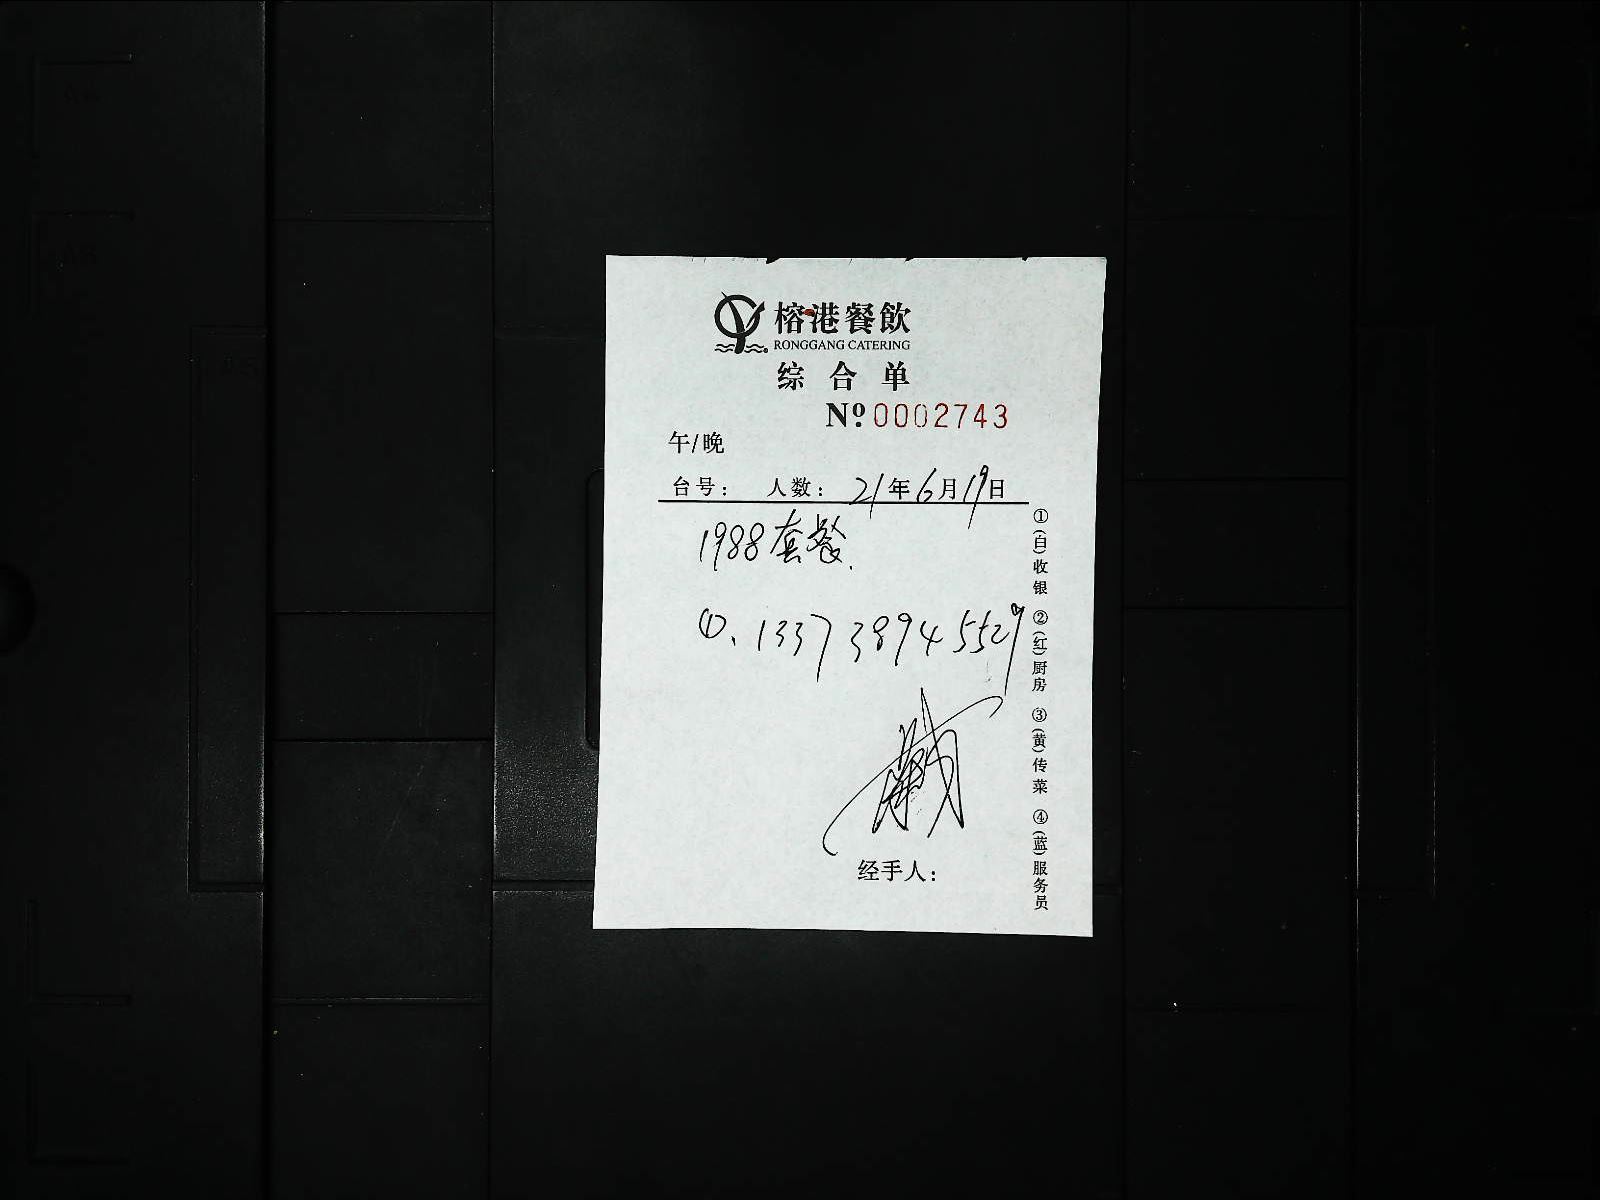 榕港餐飲
RONGGANG CATERING
综合单
Nº 0002743
午/晚
台号： 人数： 21年6月19日
1988套餐.
①. 133738945529
经手人：
①(白)收银 ②(红)厨房 ③(黄)传菜 ④(蓝)服务员